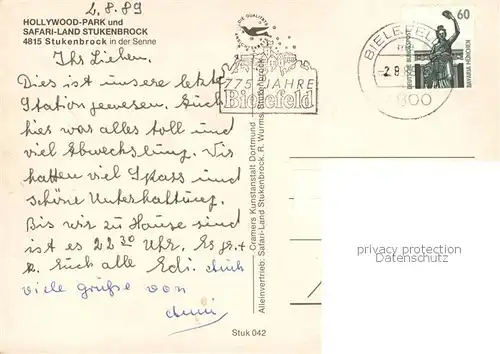 2.8.89
HOLLYWOOD-PARK und
SAFARI-LAND STUKENBROCK
4815 Stukenbrock in der Senne
Ihr Lieben.
Dies ist unsere letzte
Station gewesen. Auch
hier was alles toll und
viel Abwechslung. Wir
hatten viel Spass und
schöne Unterhaltung.
Bis wir zu Hause sind
ist es 22 30 Uhr. Es gr. +
k. Euch alle Edi. Auch
viele Grüße von
Stuk 042
775 JAHRE
Bielefeld
Cramers Kunstanstalt Dortmund
Alleinvertrieb: Safari-Land Stukenbrock, R. Wurms, Stukenbrock
BIELEFELD
-2.8.89
60
DEUTSCHE BUNDESPOST
BAVARIA MÜNCHEN
privacy protection
Datenschutz